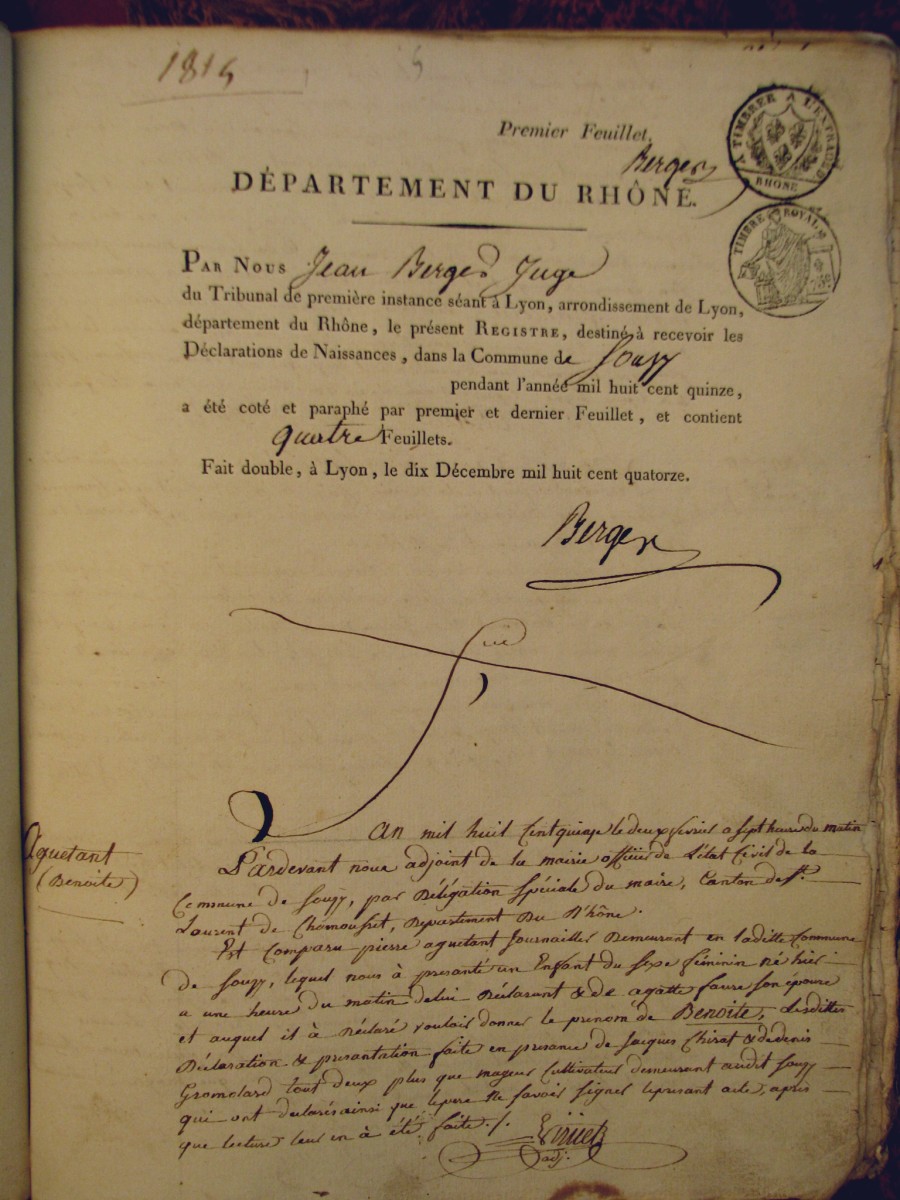 1815
5
Premier Feuillet.
Berger
A TIMBRER A L'EXTRAORD
RHONE
DÉPARTEMENT DU RHÔNE.
TIMBRE ROYAL
PAR NOUS Jean Berger Juge
du Tribunal de première instance séant à Lyon, arrondissement de Lyon,
département du Rhône, le présent REGISTRE, destiné à recevoir les
Déclarations de Naissances, dans la Commune de Souzy
pendant l'année mil huit cent quinze,
a été coté et paraphé par premier et dernier Feuillet, et contient
quatre Feuillets.
Fait double, à Lyon, le dix Décembre mil huit cent quatorze.
Berger
Aquetant
(Benoite)
L'an mil huit Cent quinze le deux fevrier a sept heure du matin
Pardevant nous adjoint de la mairie officier de L'état Civil de la
Commune de Souzy, par Délégation Spéciale du maire, Canton de St.
Laurent de Chamousset, Département Du Rhône.
Est Comparu pierre aquetant Journaillier Demeurant en laditte Commune
de Souzy, lequel nous à presanté un Enfant du Sexe féminin né hier
a une heure du matin de lui Déclarant & de agatte faure Son épouse
et auquel il à Déclaré vouloir donner le prenom de Benoite, Lesdittes
Déclaration & presantation faite en presance de Jacques Chirat & de denis
Gromolard tout deux plus que mageur Cultivateur demeurant audit Souzy
qui ont declarés ainsi que le pere Ne Savoir Signer le presant acte, après
que lecture leur en à été faite ./.
adj.